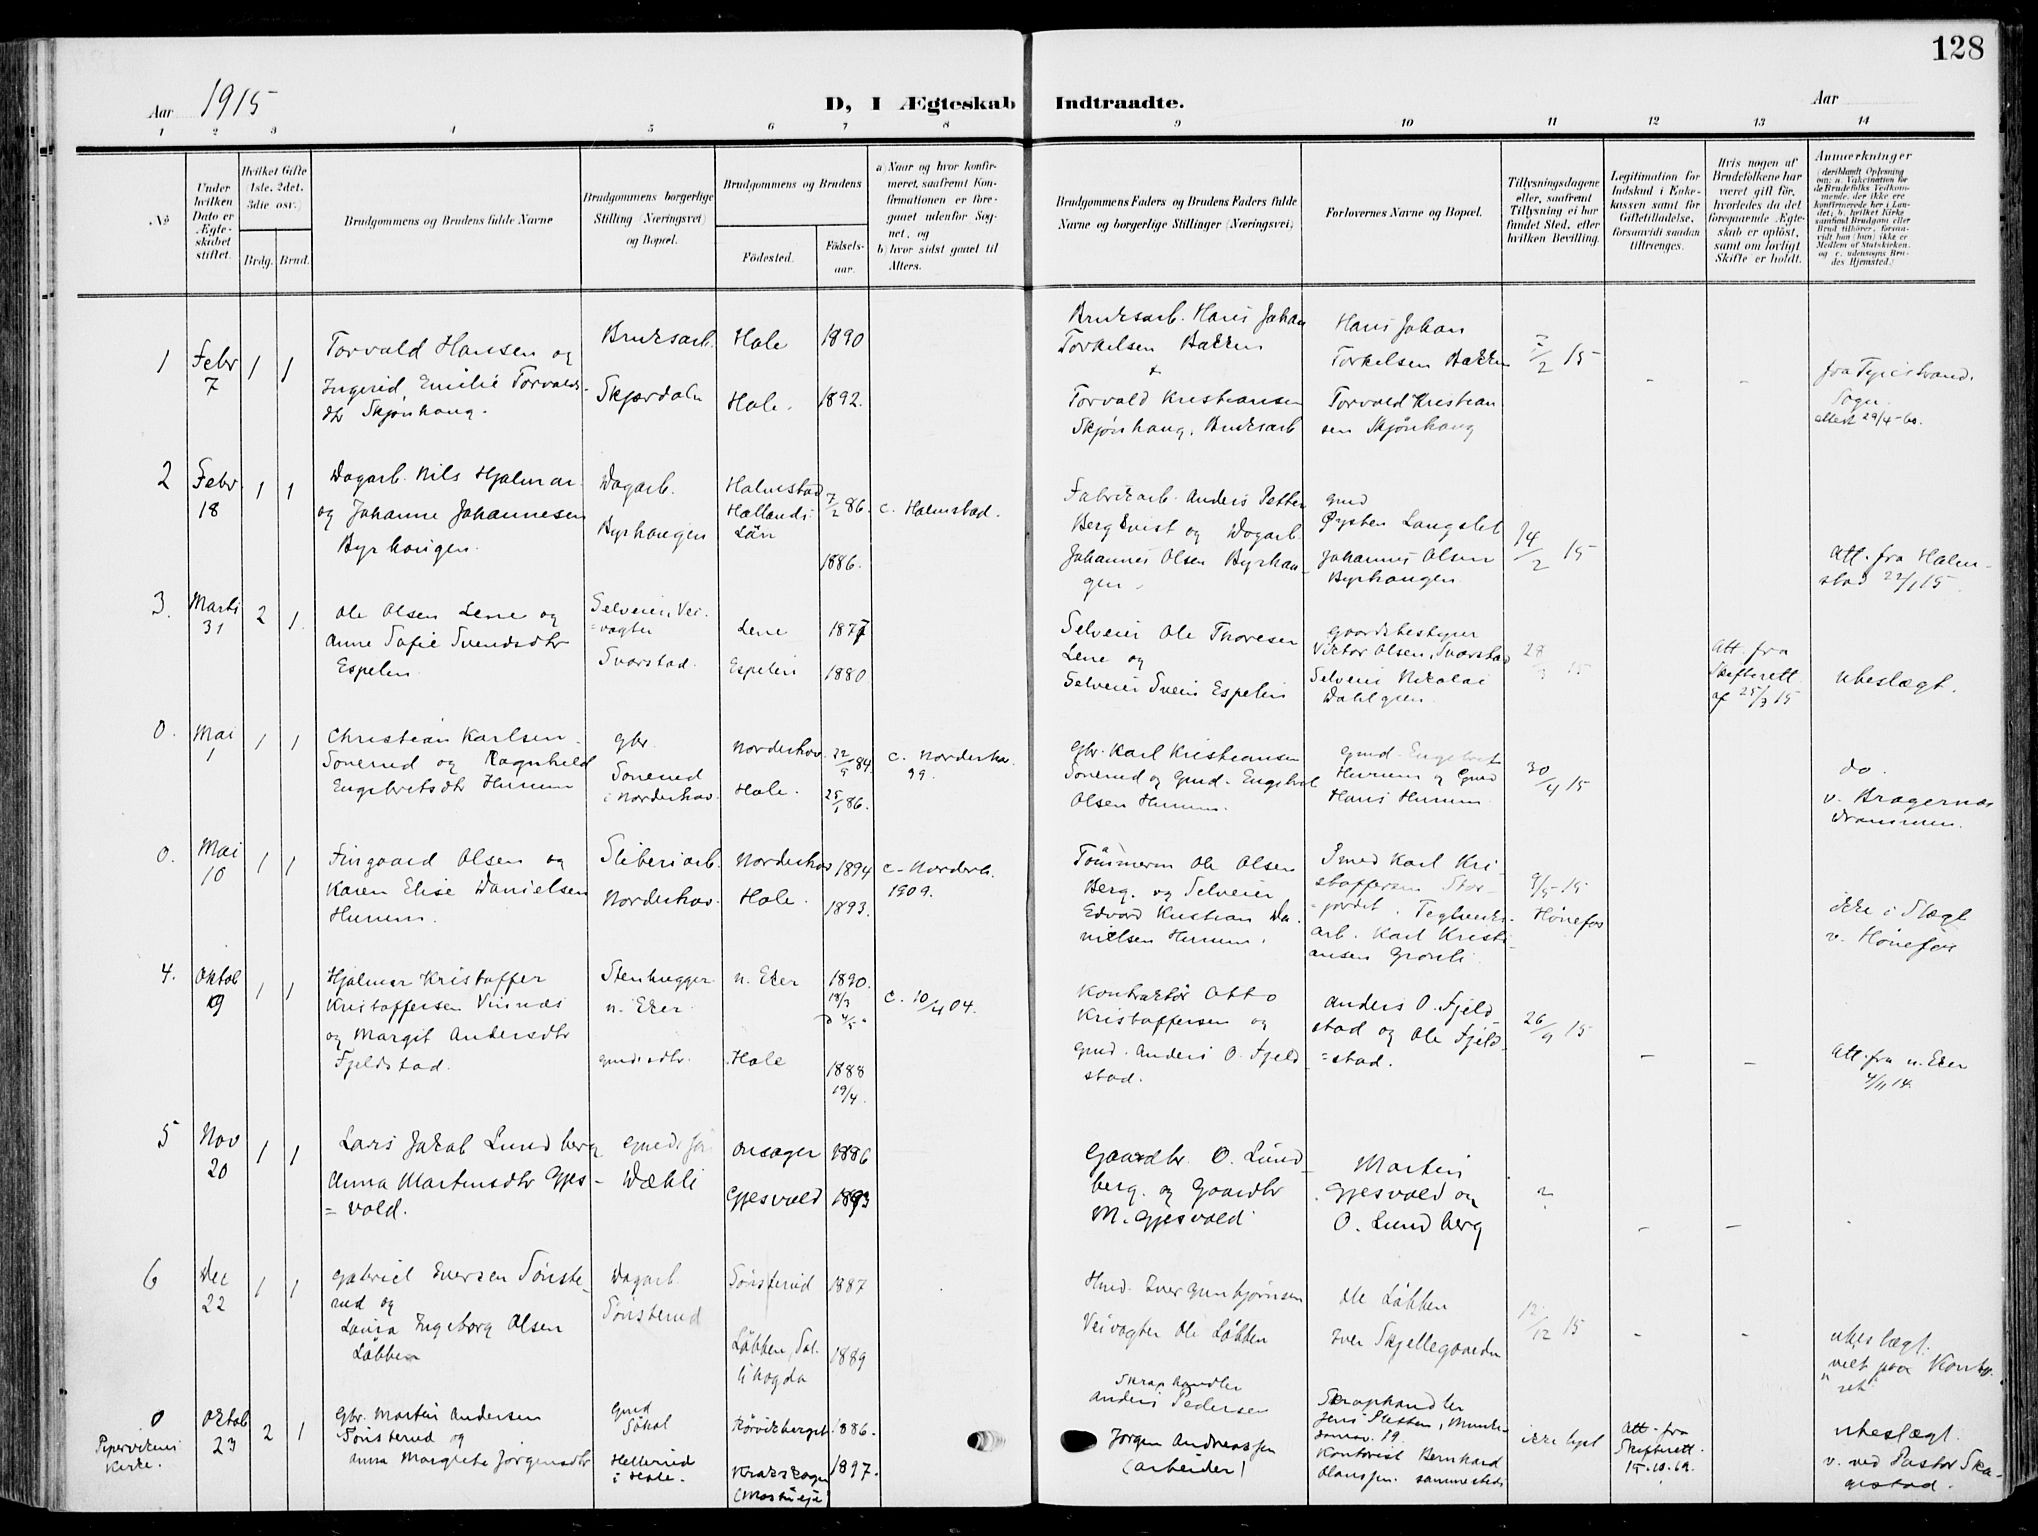 128
Aar 1915
D, I Ægteskab Indtraadte.
Aar
1 2 3 4 5 6 7 8 9 10 11 12 13 14
No
Under hvilken Dato er Ægteskabet stiftet.
Hvilket Gifte 1ste, 2det, 3die osv.)
Brdg. Brud.
Brudgommens og Brudens fulde Navne
Brudgommens borgerlige Stilling (Næringsvei) og Bopæl.
Brudgommens og Brudens
Fødested.
Fødselsaar.
a) Naar og hvor konfirmeret, saafremt Konfirmationen er foregaaet udenfor Sognet, og
b) hvor sidst gaaet til Alters.
Brudgommens Faders og Brudens Faders fulde Navne og borgerlige Stillinger (Næringsvei)
Forlovernes Navne og Bopæl.
Tillysningsdagene, eller, saafremt Tillysning ei har fundet Sted, efter hvilken Bevilling.
Legitimation for Indskud i Enkekassen samt for Giftetilladelse, forsaavidt saadan tiltrænges.
Hvis nogen af Brudefolkene har været gift før, hvorledes da det foregaaende Ægteskab er opløst, samt om lovligt Skifte er holdt.
Anmærkninger
(deriblandt Oplysning om: a. Vakcination for de Brudefolks Vedkommende, der ikke ere konfirmerede her i Landet; b. hvilket Kirkesamfund Brudgom eller Brud tilhører, forsaavidt han (hun) ikke er Medlem af Statskirken, og c. udensogns Brudes Hjemsted.)
1
Febr
7
1 1
Torvald Hansen og
Ingerid Emilie Torvalds-
dtr Skjønhaug.
Bruksarb.
Skjærdaln
Hole 1890
Hole. 1892.
Bruksarb. Hans Johan
Torkelsen Bakken
+
Torvald Kristiansen
Skjønhaug, Bruksarb
Hans Johan
Torkelsen Bakken
Torvald Kristian
sen Skjönhaug
7/2 15
-
-
fra Tyristrand
Sogn.
2
Febr
18
1 1
Dagarb. Nils Hjalmar
og Johanne Johannesen
Byrhaugen.
Dagarb.
Byrhaugen
Halmstad
Hallands
Län
7/2 86.
1886.
c. Halmstad.
Fabrikarb. Anders Petter
Bergkvist og Dagarb.
Johannes Olsen Byrhau-
gen.
gmd
Øysten Langslet
Johannes Olsen
Byrhaugen.
14/2 15
Att. fra Halm-
stad 22/1 15.
3.
Marts
31
2 1.
Ole Olsen Lene og
Anne Sofie Svendsdtr
Espelin.
Selveier, Vei-
=vogter
Svarstad.
Lene 1877
Espelin 1880
Selveier Ole Thoresen
Lene og
Selveier Svein Espelin
Gaardsbestyrer
Viktor Olsen, Svarstad
Selveier Nikolai
Dahlgren.
28/3 15
Att. fra
Skifterett
af 25/3 15
ubeslægt.
0.
Mai
1
1 1
Christian Karlsen
Sonerud og Ragnhild
Engebretsdtr Hurum
gbr.
Sonerud
i Norderhov.
Norderhov 22/9 84.
Hole. 25/1 86.
c. Norderho.
99.
Gbr. Karl Kristiansen
Sonerud og Gmd. Engebret
Olsen Hurum.
Gmd. Engebret
Hurum og Gmd
Hans Hurum.
30/4 15
do.
v. Bragernæs
Drammen.
0.
Mai
10
1 1
Fingaard Olsen og
Karen Elise Danielsen
Hurum.
Sliberiarb.
Norderhov.
Norderhov 1894
Hole. 1893.
c. Norderh.
1909.
Tömmerm Ole Olsen
Berg. og Selveier
Edvard Kristian Da-
nielsen Hurum.
Smed Karl Kri-
stoffersen Stor-
=jordet. Teglverks-
arb. Karl Kristi-
ansen Grønli.
9/5 15
Hönefos
ikke i Slægt
v. Hönefos
4.
Oktob
9
1 1
Hjalmar Kristoffer
Kristoffersen Vinnæs
og Margit Andersdtr
Fjeldstad.
Stenhugger
n. Eker.
gmdsdtr.
n. Eker 1890.
18/3
Hole 1888
19/4.
c. 10/4 04.
Kontraktör Otto
Kristoffersen og
gmd. Anders O. Fjeld
stad.
Anders O. Fjeld
stad og Ole Fjeld-
=stad.
26/9 15
-
-
Att. fra n. Eker
4/11 14.
5
Nov
20
1 1
Lars Jakob Lundberg
Anna Martinsdtr Gjes-
=vold.
Wæhli
Onsager 1886
Gjesvold 1893
Gaardbr. O. Lund-
berg. og Gaardbr
M. Gjesvold
Martin
Gjesvold og
O. Lundberg
-
-
6
Dec
22
1 1
Gabriel Iversen Sønste-
rud og
Laura Ingeborg Olsen
Løkken
Dagarb.
Sønsterud
Sønsterud 1887
Løkken, Sol-
lihøgda 1889
Hmd. Iver Gunbjørnsen
Veivogter Ole Løkken
Ole Løkken
Iver Skjellegaarden
12/12 15
-
-
ubeslægt.
viet paa Kontо-
ret
0
Pipervikens
Kirke.
Oktob
23
2 1
Gbr. Martin Andersen
Sønsterud og
Anna Margrete Jörgensdtr
Gmd
Søhol
Hellerud
i Hole.
Rörvikberget 1886.
Krokskogen 1897.
Skraphandler
Anders Pedersen
Jørgen Andreassen
(arbeider)
Skraphandler
Jens Pletten, Munke
damsv. 19.
Kontorist Bernhard
Olaussen. sammesteds
ikke lyst
Att. fra
Skifterett.
ubeslægt.
v. ved Pastor Ska-
gestad.